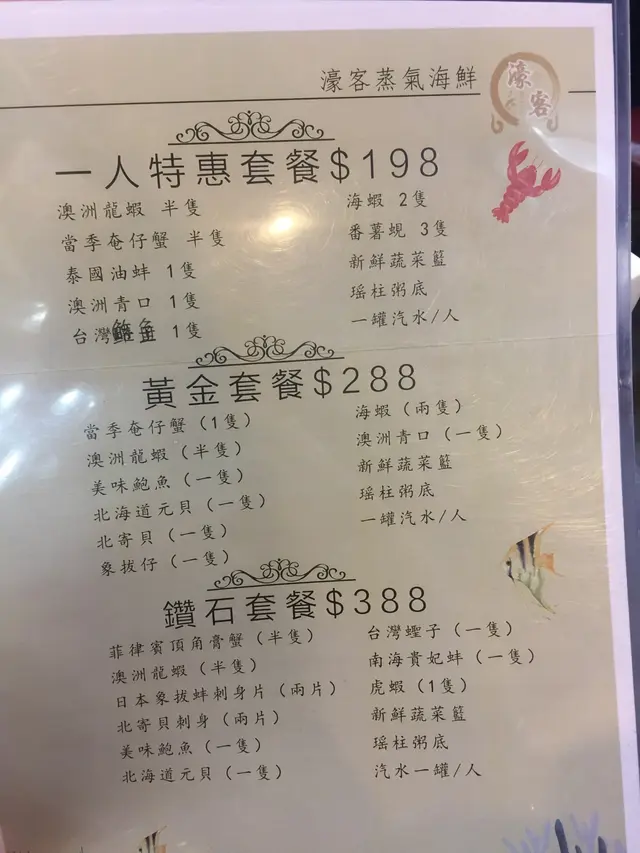 濠客蒸氣海鮮
濠客
一人特惠套餐$198
澳洲龍蝦 半隻
當季奄仔蟹 半隻
泰國油蚌 1隻
澳洲青口 1隻
台灣鮑魚 1隻
海蝦 2隻
番薯蜆 3隻
新鮮蔬菜籃
瑶柱粥底
一罐汽水/人
黃金套餐$288
當季奄仔蟹(1隻)
澳洲龍蝦(半隻)
美味鮑魚(一隻)
北海道元貝(一隻)
北寄貝(一隻)
象拔仔(一隻)
海蝦(兩隻)
澳洲青口(一隻)
新鮮蔬菜籃
瑶柱粥底
一罐汽水/人
鑽石套餐$388
菲律賓頂角膏蟹(半隻)
澳洲龍蝦(半隻)
日本象拔蚌刺身片(兩片)
北寄貝刺身(兩片)
美味鮑魚(一隻)
北海道元貝(一隻)
台灣蟶子(一隻)
南海貴妃蚌(一隻)
虎蝦(1隻)
新鮮蔬菜籃
瑶柱粥底
汽水一罐/人